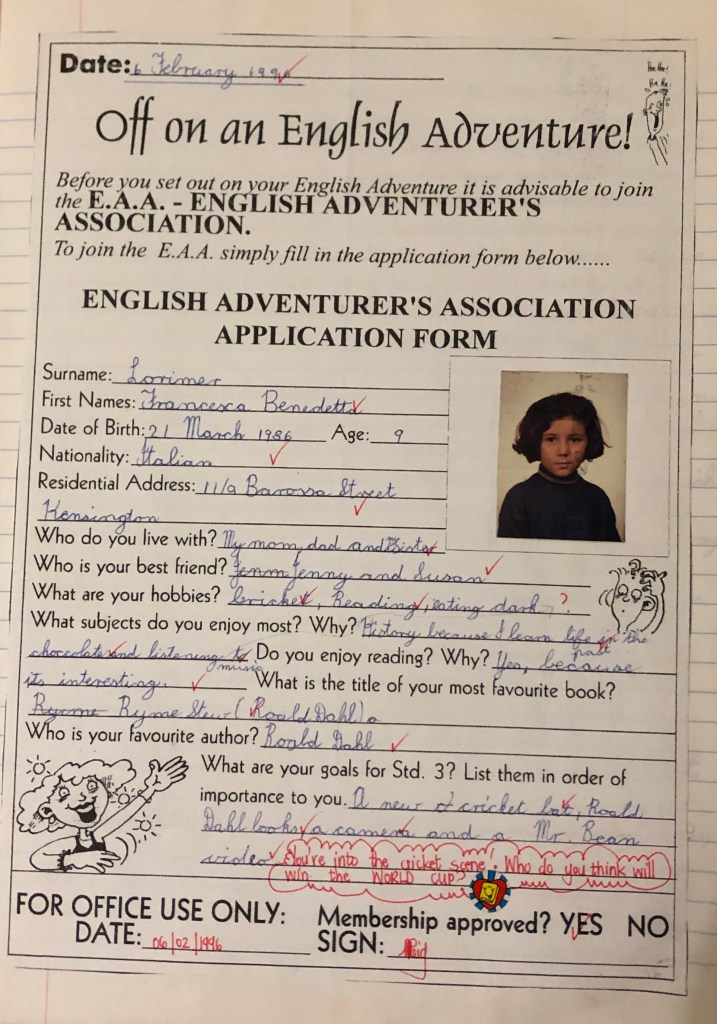 Date: 6 February 1996
He He!
Ha Ha
Off on an English Adventure!
Before you set out on your English Adventure it is advisable to join
the E.A.A. - ENGLISH ADVENTURER'S
ASSOCIATION.
To join the E.A.A. simply fill in the application form below......
ENGLISH ADVENTURER'S ASSOCIATION
APPLICATION FORM
Surname: Lorimer
First Names: Francesca Benedetta
Date of Birth: 21 March 1986 Age: 9
Nationality: Italian
Residential Address: 11/a Barossa Street
Kensington
Who do you live with? My mom, dad and sister
Who is your best friend? Jenny and Susan
What are your hobbies? Cricket, Reading, eating dark ?
What subjects do you enjoy most? Why? History because I learn life in the past
chocolate and listening to music Do you enjoy reading? Why? Yes, because
its interesting. What is the title of your most favourite book?
Ryme Ryme Stew (Roald Dahl)
Who is your favourite author? Roald Dahl
What are your goals for Std. 3? List them in order of
importance to you. A new cricket bat, Roald
Dahl books, a camera and a Mr. Bean
video
You're into the cricket scene! Who do you think will
win the WORLD CUP?
FOR OFFICE USE ONLY: Membership approved? YES NO
DATE: 06/02/1996 SIGN: